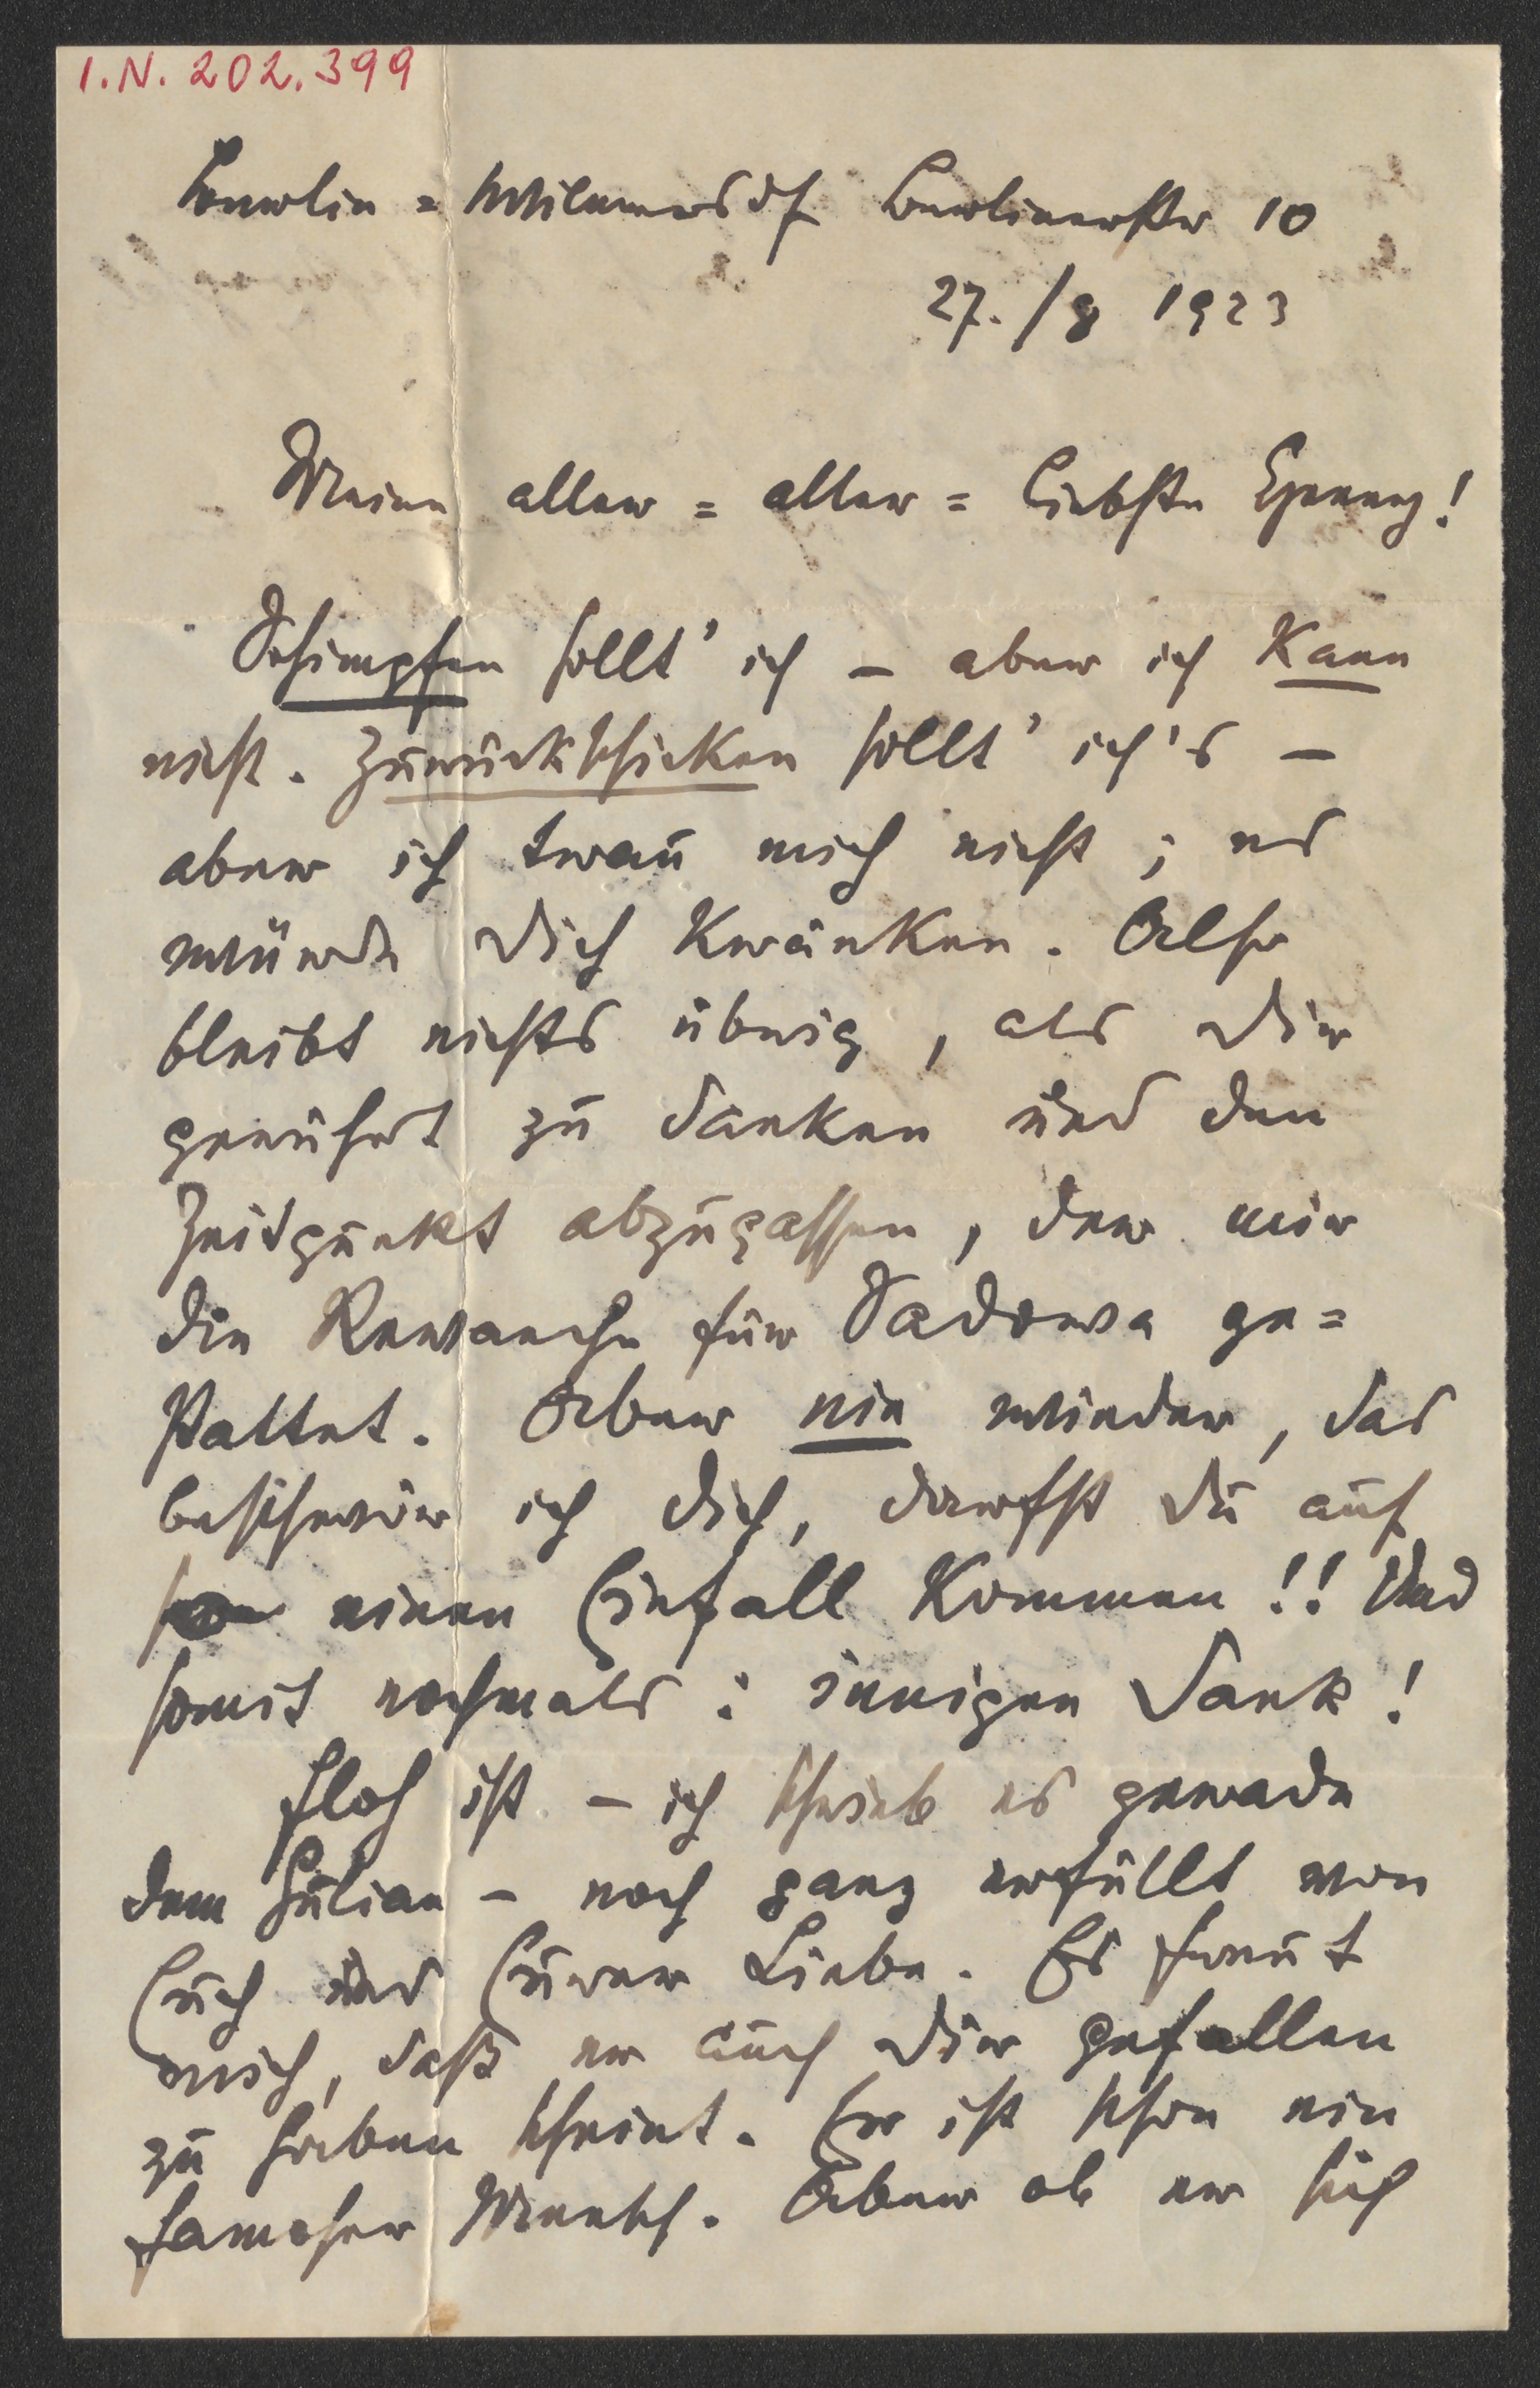 I.N. 202.399
Berlin = Wilmersdf Berlinerstr 10
27./8 1923
Meine aller = aller = liebste Eugenie!
Schimpfen sollt' ich – aber ich kann
nicht. Zurückschicken sollt' ich's –
aber ich trau mich nicht; es
würde Dich kränken. Also
bleibt nichts übrig, als Dir
gerührt zu danken und den
Zeitpunkt abzupassen, der mir
die Revanche für Sadowa ge=
stattet. Aber nie wieder, das
beschwör ich Dich, darfst Du auf
so einen Einfall kommen!! Und
somit nochmals: innigen Dank!
Floch ist – ich schrieb es gerade
dem Julian – noch ganz erfüllt von
Euch und Eurer Liebe. Es freut
mich, daß er auch Dir gefallen
zu haben scheint. Er ist schon ein
famoser Mensch. Aber ob er sich